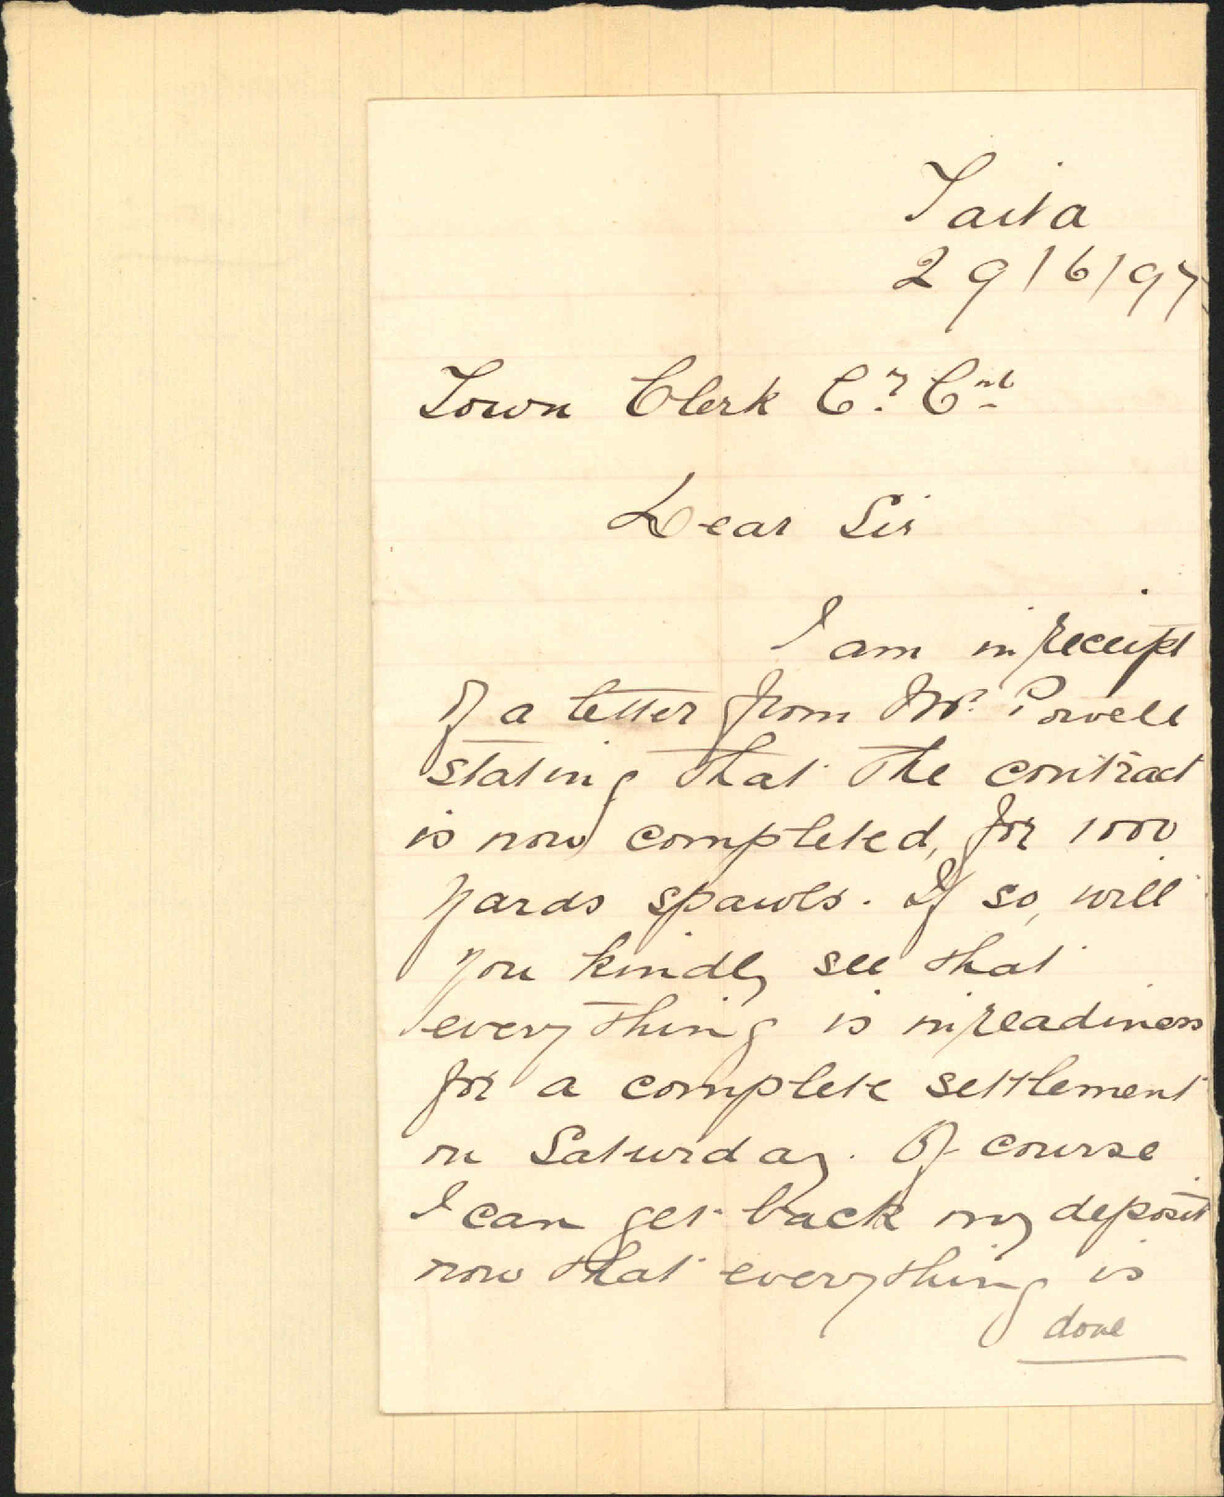 Taita
29/6/97
Town Clerk C.r C.nl
Dear Sir
I am in receipt
of a letter from Mr. Powell
stating that the contract
is now completed, for 1000
yards spawls. If so, will
you kindly see that
everything is in readiness
for a complete settlement
on Saturday. Of course
I can get back my deposit
now that everything is
done